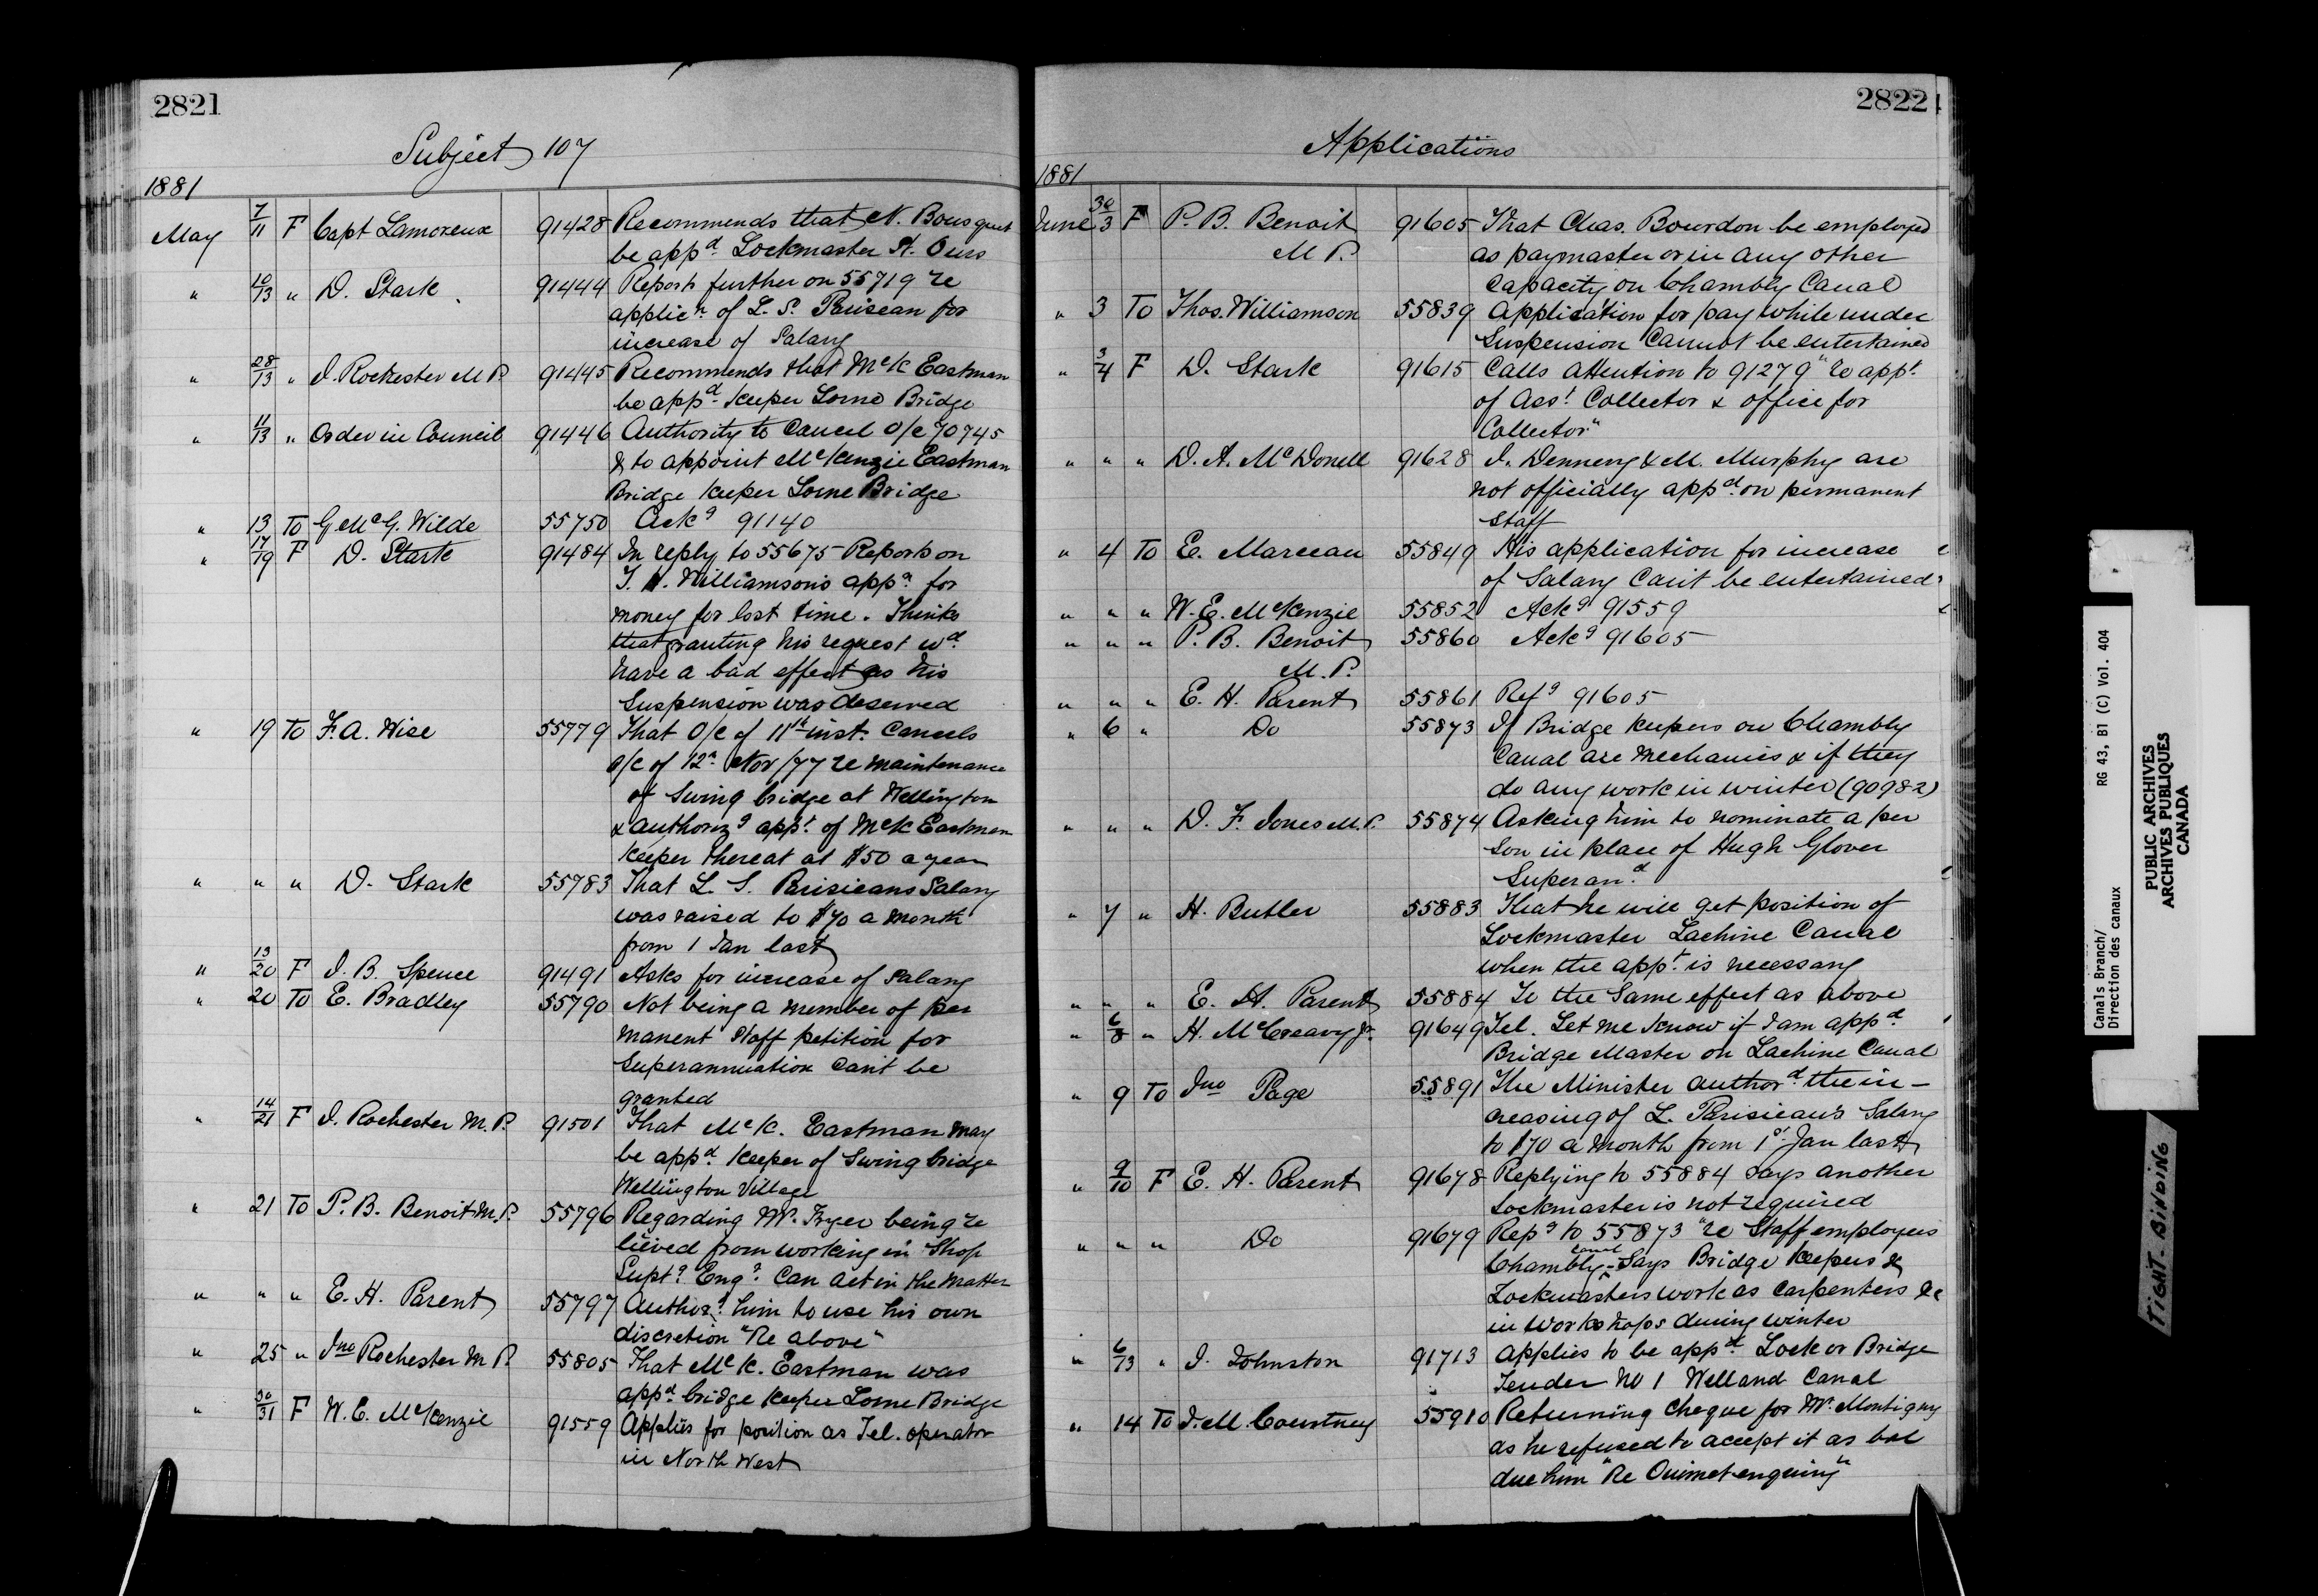 2821
Subject 107
1881
May 7/11 F Capt Lamoreux 91428 Recommends that N. Bousquet
be appd. Lockmaster St. Ours
" 10/13 " D. Stark 91444 Reports further on 55719 re
applicn. of L. S. Parisean for
increase of Salary
" 28/13 " J. Rochester M.P. 91445 Recommends that McK Eastman
be appd. Keeper Lorne Bridge
" 11/13 " Order in Council 91446 Authority to Cancel O/C 70745
& to appoint McKenzie Eastman
Bridge Keeper Lorne Bridge
" 13 To G McG. Wilde 55750 Ackg 91140
" 17/19 F D. Stark 91484 In reply to 55675 Reports on
T. W. Williamson's appn. for
money for lost time. Thinks
that granting his request wd.
have a bad effect as his
Suspension was deserved
" 19 To F. A. Wise 55779 That O/C of 11th inst. Cancels
O/C of 12th Nov/77 re maintenance
of Swing bridge at Wellington
& authorizg appt. of McK Eastman
Keeper thereat at $50 a year
" " " D. Stark 55783 That L. S. Parisieans Salary
was raised to $70 a month
from 1 Jan last
" 13/20 F J. B. Spence 91491 Asks for increase of Salary
" 20 To E. Bradley 55790 Not being a member of per
manent Staff petition for
Superannuation can't be
granted
" 14/21 F J. Rochester M.P. 91501 That McK. Eastman may
be appd. Keeper of Swing bridge
Wellington Village
" 21 To P. B. Benoit M.P. 55796 Regarding Mr. Fryer being re
lieved from working in Shop
Suptg Engr. Can act in the matter
" " " E. H. Parent 55797 Authorg. him to use his own
discretion "Re above"
" 25 " Jno Rochester M.P. 55805 That McK. Eastman was
appd bridge Keeper Lorne Bridge
" 30/31 F W. E. McKenzie 91559 Applies for position as Tel. operator
in North West
2822
Applications
1881
June 30/3 F P. B. Benoit 91605 That Chas. Bourdon be employed
M P. as paymaster or in any other
Capacity on Chambly Canal
" 3 To Thos. Williamson 55839 Application for pay while under
Suspension Cannot be entertained
" 3/4 F D. Stark 91615 Calls attention to 91279 "re appt.
of Asst. Collector & office for
Collector"
" " " D. A. McDonell 91628 J. Denneny & M. Murphy are
not officially appd. on permanent
Staff
" 4 To E. Marceau 55849 His application for increase
of Salary Can't be entertained
" " " W. E. McKenzie 55852 Ackg 91559
" " " P. B. Benoit 55860 Ackg 91605
M.P.
" " " E. H. Parent 55861 Refg 91605
" 6 " Do 55873 If Bridge Keepers on Chambly
Canal are Mechanics & if they
do any work in winter (90982)
" " " D. F. Jones M.P. 55874 Asking him to nominate a per
son in place of Hugh Glover
Superand.
" 7 " H. Butler 55883 That he will get position of
Lockmaster Lachine Canal
when the appt. is necessary
" " " E. H. Parent 55884 To the Same effect as above
" 6/8 " H. McCreavy Jr. 91649 Tel. Let me know if I am appd.
Bridge Master on Lachine Canal
" 9 To Jno Page 55891 The Minister authord. the in-
creasing of L. Parisiean's Salary
to $70 a month from 1st Jan last
" 9/10 F E. H. Parent 91678 Replying to 55884 says another
Lockmaster is not required
" " " Do 91679 Repg to 55873 "re Staff employees
Chambly Canal - Says Bridge Keepers &
Lockmasters work as Carpenters &c
in workshops during winter
" 6/13 " J. Johnston 91713 Applies to be appd. Lock or Bridge
Tender No 1 Welland Canal
" 14 To J. M. Courtney 55910 Returning cheque for Mr. Montigny
as he refused to accept it as bal
due him "Re Ouimet enquiry"
Canals Branch/ RG 43, B1 (C) Vol. 404
Direction des canaux
PUBLIC ARCHIVES
ARCHIVES PUBLIQUES
CANADA
TIGHT BINDING